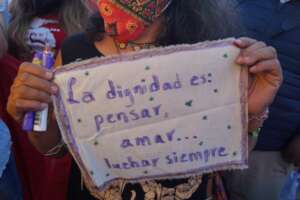 La dignidad es:
pensar,
amar...
luchar siempre